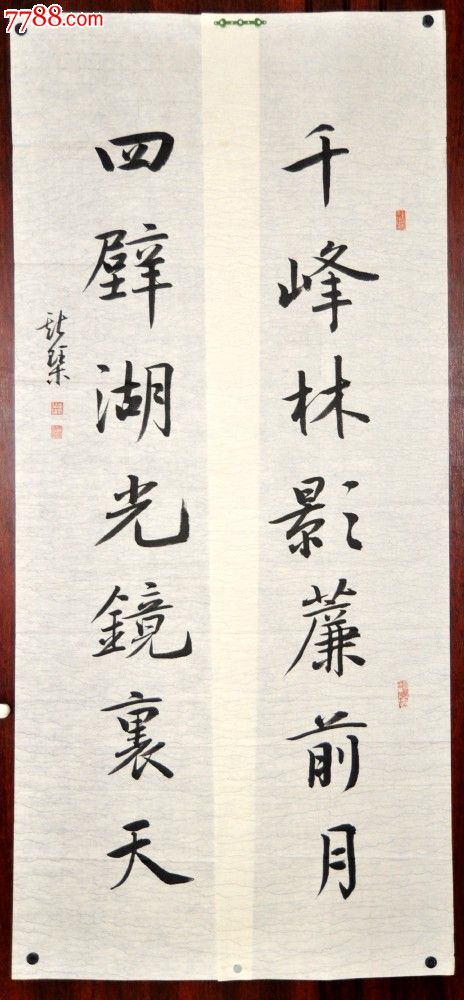 7788.com
千峰林影簾前月
四壁湖光鏡裏天